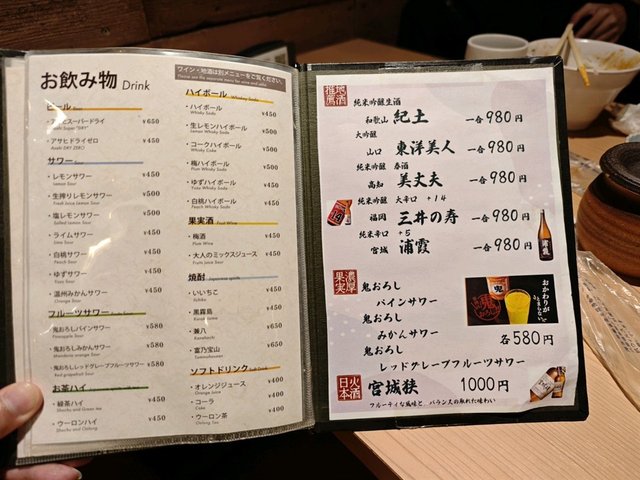 お飲み物 Drink
ワイン・地酒は別メニューをご覧ください。
Please see the separate menu for wine and sake.
ビール Beer
・アサヒスーパードライ ¥650
Asahi Super "DRY"
・アサヒドライゼロ ¥450
Asahi DRY ZERO
サワー Sour
・レモンサワー ¥450
Lemon Sour
・生搾りレモンサワー ¥500
Fresh Juice Lemon Sour
・塩レモンサワー ¥500
Salted Lemon Sour
・ライムサワー ¥450
Lime Sour
・白桃サワー ¥450
Peach Sour
・ゆずサワー ¥450
Yuzu Sour
・温州みかんサワー ¥450
Orange Sour
フルーツサワー
・鬼おろしパインサワー ¥580
Pineapple Sour
・鬼おろしみかんサワー ¥580
Mandarin orange Sour
・鬼おろしレッドグレープフルーツサワー ¥580
Red grapefruit Sour
お茶ハイ
・緑茶ハイ ¥450
Shochu and Green tea
・ウーロンハイ ¥450
Shochu and Oolong
ハイボール Whisky Soda
・ハイボール ¥450
Whisky Soda
・生レモンハイボール ¥500
Lemon Whisky Soda
・コークハイボール ¥500
Whisky Coke
・梅ハイボール ¥500
Plum Whisky Soda
・ゆずハイボール ¥450
Yuzu Whisky Soda
・白桃ハイボール ¥450
Peach Whisky Soda
果実酒 Fruit Wine
・梅酒 ¥450
Plum Wine
・大人のミックスジュース ¥450
Fruits Juice Sour
焼酎 Japanese spirits
・いいちこ ¥450
Iichiko
・黒霧島 ¥450
・兼八 ¥450
Kanehachi
・富乃宝山 ¥450
Tominohouzan
ソフトドリンク Soft Drink
・オレンジジュース ¥400
Orange Juice
・コーラ ¥400
Coke
・ウーロン茶 ¥400
Oolong Tea
地酒
推薦
純米吟醸生酒
和歌山 紀土 一合 980円
大吟醸
山口 東洋美人 一合 980円
純米吟醸 春酒
高知 美丈夫 一合 980円
純米吟醸 大辛口 +14
福岡 三井の寿 一合 980円
純米辛口 +5
宮城 浦霞 一合 980円
濃厚
果実
鬼おろし
パインサワー
鬼おろし
みかんサワー
鬼おろし
レッドグレープフルーツサワー
各580円
おかわりが
とまらない
火酒
日本
宮城狭 1000円
フルーティな風味と、バランスの取れた味わい